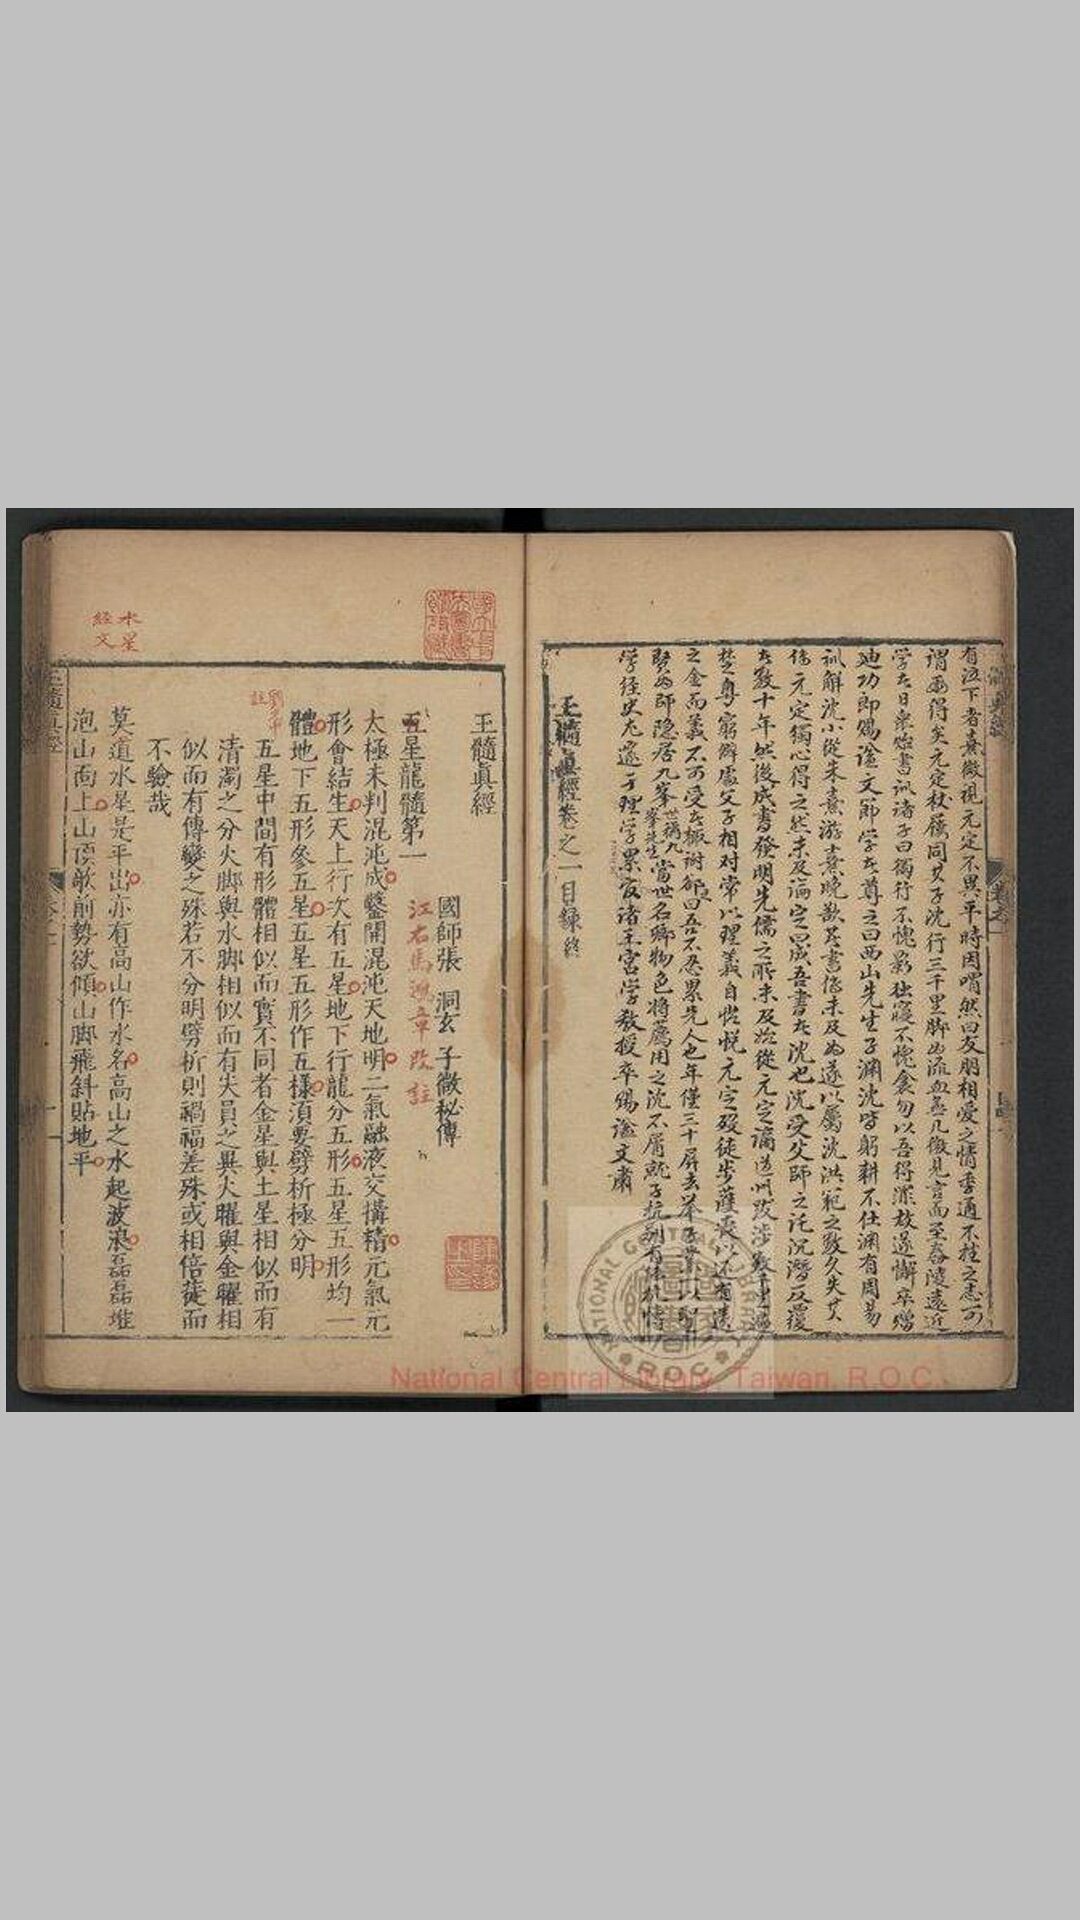 有泣下者熹微視元定不異平時因喟然曰友朋相愛之情季通不挫之志可
謂兩得矣元定杖屨同其子沈行三千里脚為流血無几微見言面至舂陵遠近
学者日衆貽書訓諸子曰獨行不愧影独寢不愧衾勿以吾得罪故遂懈卒贈
迪功郎賜諡文節学者尊之曰西山先生子渊沈皆躬耕不仕渊有周易
訓解沈小從朱熹游熹晚欲著書傳未及為遂以屬沈洪範之数久失其
傳元定獨心得之然未及論定曰成吾書者沈也沈受父師之托沉潛反覆
者数十年然後成書發明先儒之所未及始從元定謫道州跋涉数千里道
楚粵窮僻處父子相对常以理義自怡悅元定歿徒步護喪以还有遺
之金而義不可受者輒谢卻之曰吾不忍累先人也年僅三十屏去举子業一以聖
賢為師隐居九峯當世名卿物色將薦用之沈不屑就子抗别有
世稱九
峯先生
学経史尤邃于理学累官諸王宮学教授卒賜諡文肅
玉髓眞經卷之一目録終
玉髓眞經
國師張 洞玄 子微秘傳
江右馬 章改註
五星龍髓第一
太極未判混沌成鑿開混沌天地明二氣融液交搆精元氣元
形會結生天上行次有五星地下行龍分五形五星五形均一
體地下五形參五星五星五形作五樣須要劈析極分明
劉允中
註
五星中間有形體相似而實不同者金星與土星相似而有
清濁之分火脚與水脚相似而有尖員之異火曜與金曜相
似而有傳變之殊若不分明劈析則禍福差殊或相倍蓰而
不驗哉
水星
経文
莫道水星是平出亦有高山作水名高山之水起波浪磊磊堆
泡山面上山頂欹前勢欲傾山脚飛斜貼地平
National Central Library, Taiwan, R.O.C.
NATIONAL CENTRAL LIBRARY
R.O.C.